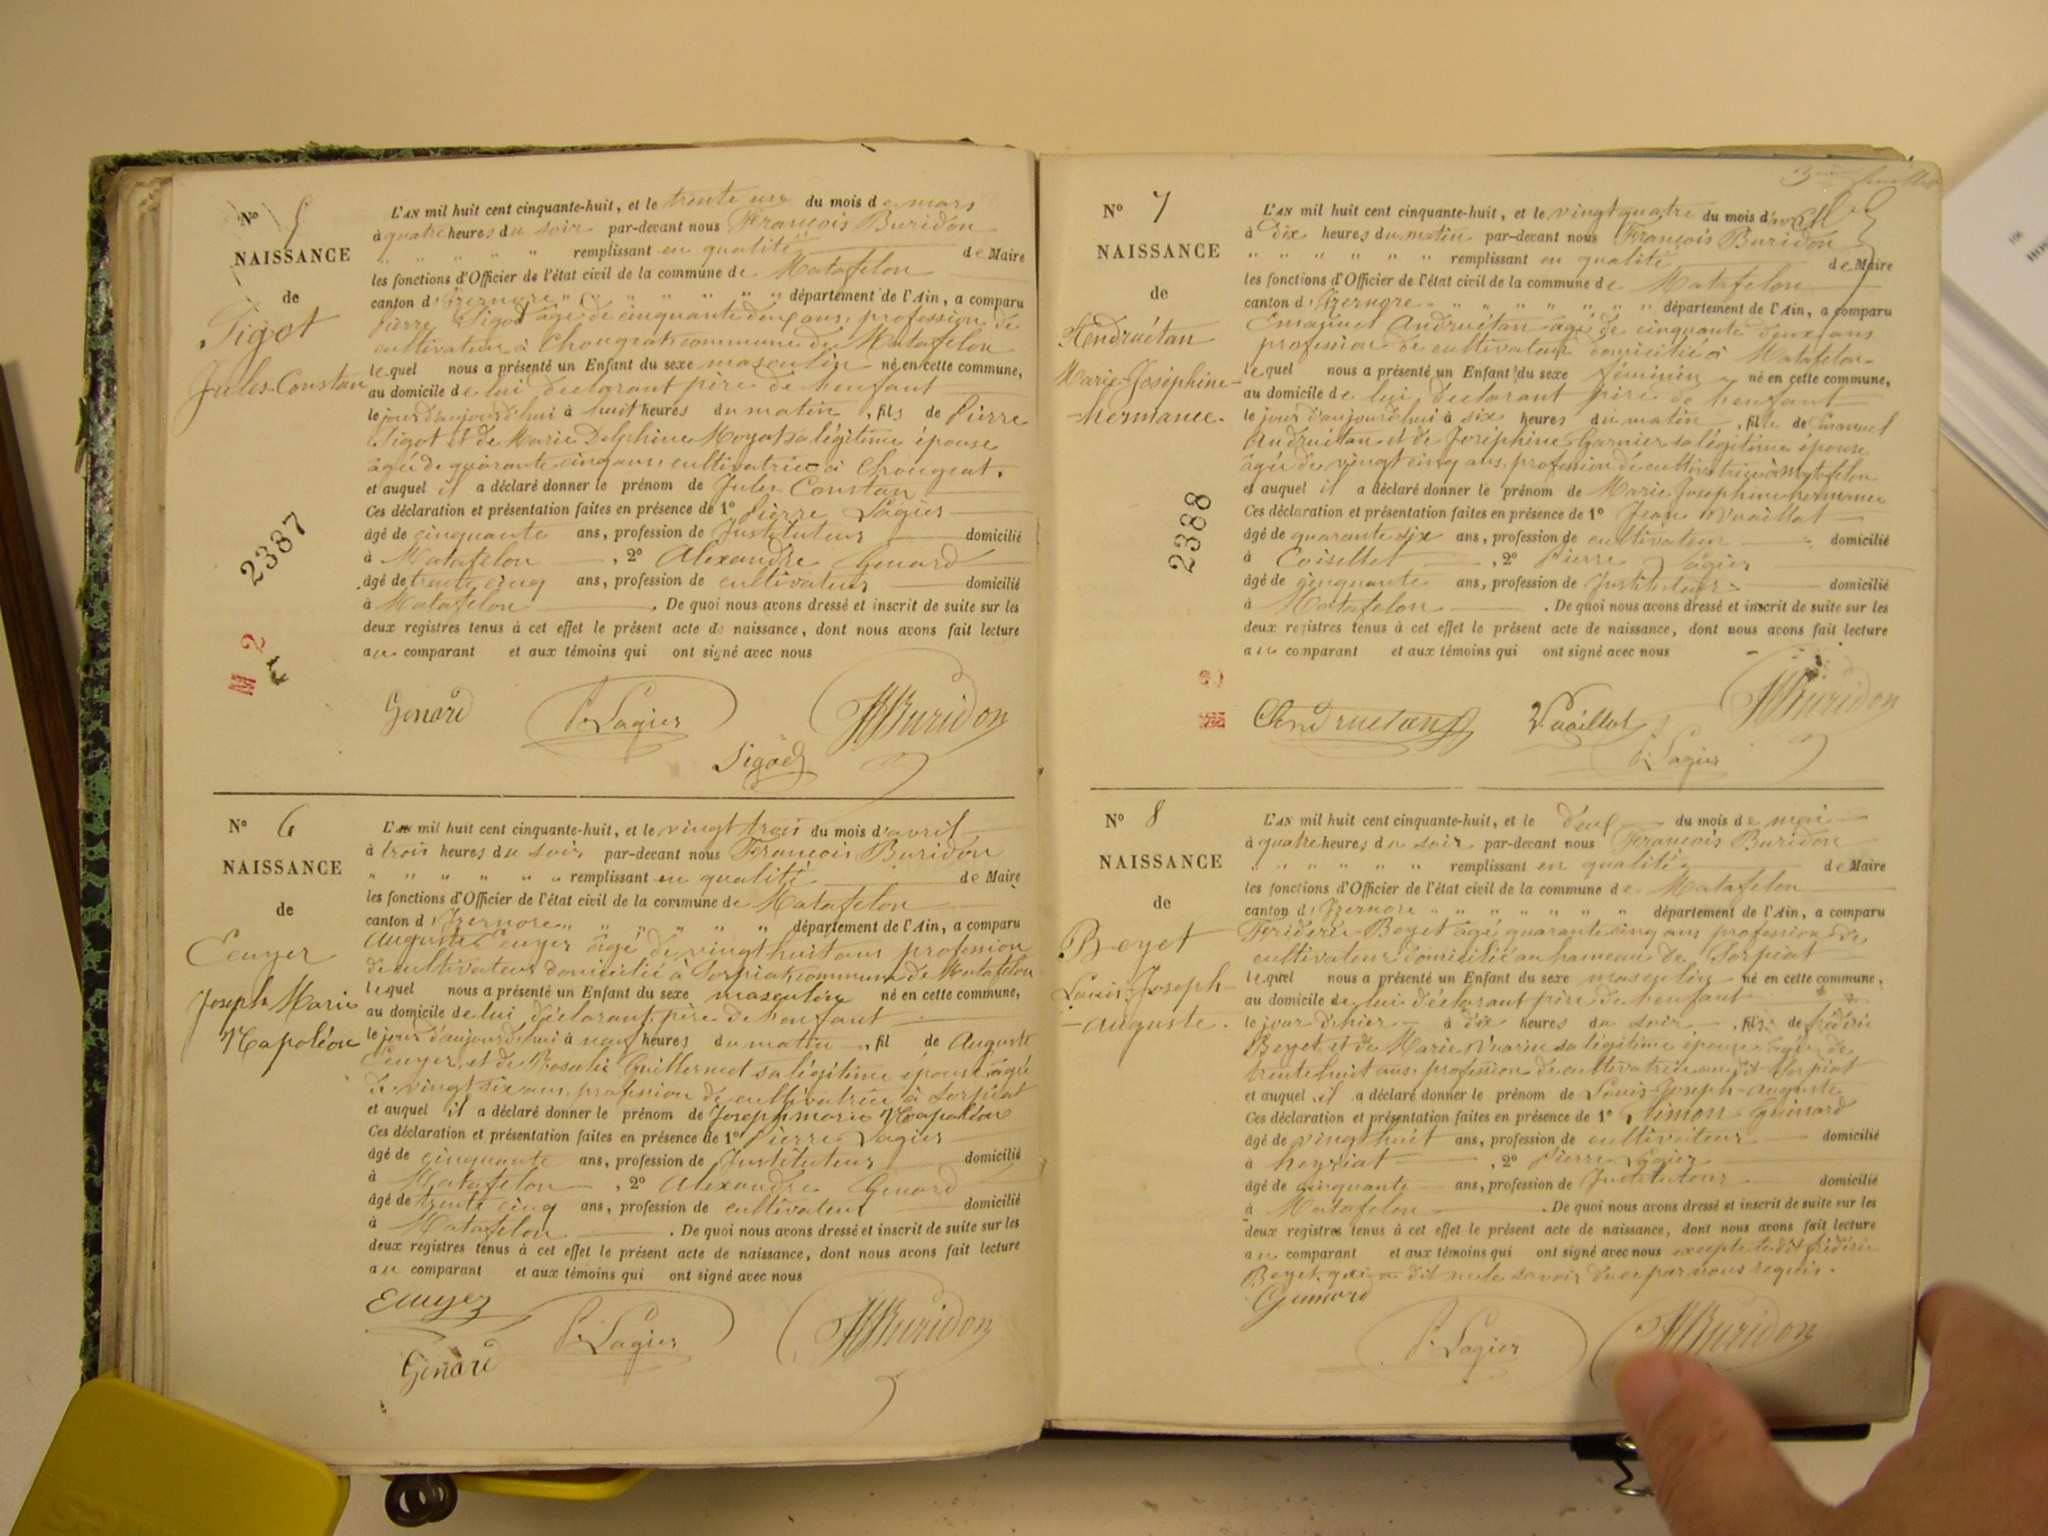 N° 5
NAISSANCE
de
Sigot
Jules-Constan
2387
M 2
L'AN mil huit cent cinquante-huit, et le trente un du mois de mars
à quatre heures du soir par-devant nous François Buridon
" " " " " remplissant en qualité de Maire
les fonctions d'Officier de l'état civil de la commune de Matafelon
canton d'Izernore " " " " " " " département de l'Ain, a comparu
Pierre Sigot âgé de cinquante deux ans, profession de
cultivateur à Chougeat commune de Matafelon
lequel nous a présenté un Enfant du sexe masculin né en cette commune,
au domicile de lui déclarant père de l'enfant
le jour d'aujourd'hui à huit heures du matin, fils de Pierre
Sigot et de Marie Delphine Moyat sa légitime épouse
âgée de quarante cinq ans, cultivatrice à Chougeat.
et auquel il a déclaré donner le prénom de Jules Constan
Ces déclaration et présentation faites en présence de 1° Pierre Lagier
âgé de cinquante ans, profession de Instituteur domicilié
à Matafelon, 2° Alexandre Genard
âgé de trente cinq ans, profession de cultivateur domicilié
à Matafelon. De quoi nous avons dressé et inscrit de suite sur les
deux registres tenus à cet effet le présent acte de naissance, dont nous avons fait lecture
au comparant et aux témoins qui ont signé avec nous
Genard P. Lagier Buridon
Sigod
N° 6
NAISSANCE
de
Ecuyer
Joseph Marie
Napoléon
L'AN mil huit cent cinquante-huit, et le vingt trois du mois d'avril
à trois heures du soir par-devant nous François Buridon
" " " " " " " remplissant en qualité de Maire
les fonctions d'Officier de l'état civil de la commune de Matafelon
canton d'Izernore " " " " " " département de l'Ain, a comparu
Auguste Ecuyer âgé de vingt huit ans profession
de cultivateur domicilié à Sorpiat commune de Matafelon
lequel nous a présenté un Enfant du sexe masculin né en cette commune,
au domicile de lui déclarant père de l'enfant
le jour d'aujourd'hui à neuf heures du matin, fil de Auguste
Ecuyer et de Rosalie Guillermet sa légitime épouse âgée
de vingt six ans, profession de cultivatrice à Sorpiat
et auquel il a déclaré donner le prénom de Joseph marie Napoléon
Ces déclaration et présentation faites en présence de 1° Pierre Lagier
âgé de cinquante ans, profession de Instituteur domicilié
à Matafelon, 2° Alexandre Genard
âgé de trente cinq ans, profession de cultivateur domicilié
à Matafelon. De quoi nous avons dressé et inscrit de suite sur les
deux registres tenus à cet effet le présent acte de naissance, dont nous avons fait lecture
au comparant et aux témoins qui ont signé avec nous
Ecuyez P. Lagier Buridon
Genard
N° 7
NAISSANCE
de
Andruétan
Marie-Joséphine-
hermance.
2388
L'AN mil huit cent cinquante-huit, et le vingt quatre du mois d'avril
à dix heures du matin par-devant nous François Buridon
" " " " " " " remplissant en qualité de Maire
les fonctions d'Officier de l'état civil de la commune de Matafelon
canton d'Izernore " " " " " " " " département de l'Ain, a comparu
Emanuel Andruétan âgé de cinquante deux ans
profession de cultivateur domicilié à Matafelon
lequel nous a présenté un Enfant du sexe féminin né en cette commune,
au domicile de lui déclarant père de l'enfant
le jour d'aujourd'hui à six heures du matin, fille de Emanuel
Andruétan et de Joséphine Garnier sa légitime épouse
âgée de vingt cinq ans, profession de cultivatrice à Matafelon
et auquel il a déclaré donner le prénom de Marie Josephine hermance
Ces déclaration et présentation faites en présence de 1° Jean Vuaillat
âgé de quarante six ans, profession de cultivateur domicilié
à Coisellet, 2° Pierre Lagier
âgé de cinquante ans, profession de Instituteur domicilié
à Matafelon. De quoi nous avons dressé et inscrit de suite sur les
deux registres tenus à cet effet le présent acte de naissance, dont nous avons fait lecture
au comparant et aux témoins qui ont signé avec nous
Andruetan Vuaillat Buridon
P. Lagier
N° 8
NAISSANCE
de
Beyet
Louis-Joseph-
auguste.
L'AN mil huit cent cinquante-huit, et le deux du mois de mai
à quatre heures du soir par-devant nous François Buridon
" " " " " " remplissant en qualité de Maire
les fonctions d'Officier de l'état civil de la commune de Matafelon
canton d'Izernore " " " " " " " département de l'Ain, a comparu
Fridéric Beyet âgé quarante cinq ans profession de
cultivateur domicilié au hameau de Sorpiat
lequel nous a présenté un Enfant du sexe masculin né en cette commune,
au domicile de lui déclarant père de l'enfant
le jour d'hier à dix heures du soir, fils de frédéric
Beyet et de Marie Vuarin sa légitime épouse âgée de
trente huit ans, profession de cultivatrice au dit Sorpiat
et auquel il a déclaré donner le prénom de Louis-Joseph-auguste
Ces déclaration et présentation faites en présence de 1° Simon Guinard
âgé de vingt huit ans, profession de cultivateur domicilié
à heyriat, 2° Pierre Lagier
âgé de cinquante ans, profession de Instituteur domicilié
à Matafelon. De quoi nous avons dressé et inscrit de suite sur les
deux registres tenus à cet effet le présent acte de naissance, dont nous avons fait lecture
au comparant et aux témoins qui ont signé avec nous excepté le dit frédéric
Beyet qui a dit ne le savoir de ce par nous requis.
Guinard
P. Lagier Buridon